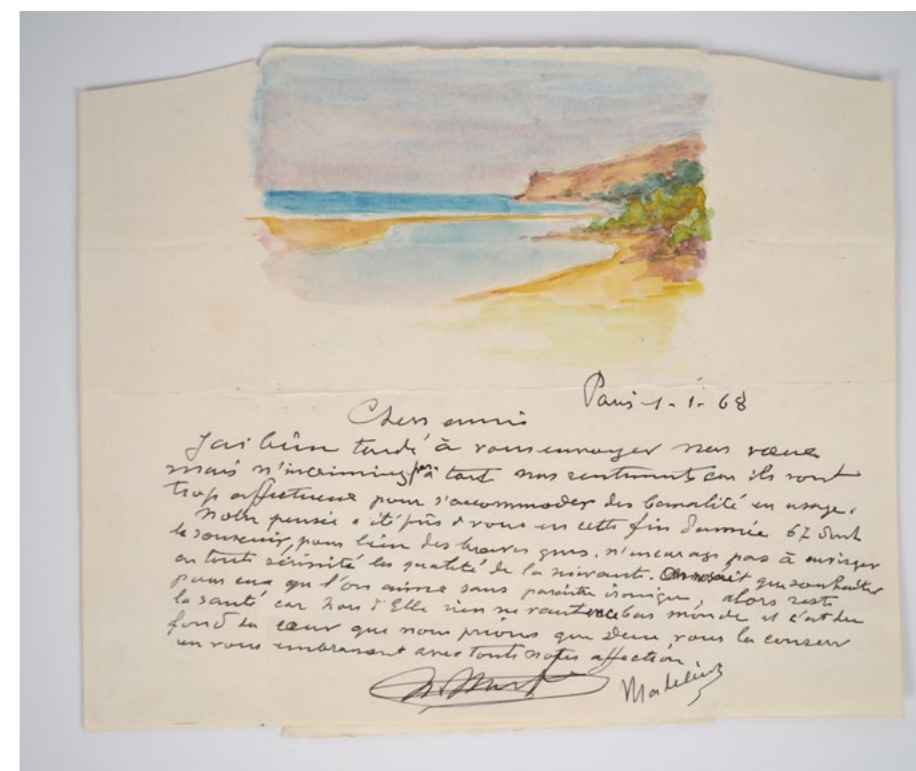 Paris 1-1-68
Chers amis
J'ai bien tardé à vous envoyer nos vœux
mais n'incriminez pas à tort nos sentiments car ils sont
trop affectueux pour s'accommoder des banalité en usage.
Notre pensée a été près d vous en cette fin d'année 67 dont
le souvenir, pour bien des braves gens, n'encourage pas à envisager
en toute sérénité les qualité de la suivante. On ne sait que souhaiter
pour ceux que l'on aime sans paraître ironique, alors reste
la santé car hors d'Elle rien ne vaut en ce bas monde et c'est du
fond du cœur que nous prions que Dieu vous la conserve
en vous embrassant avec toute notre affection
Madeleine